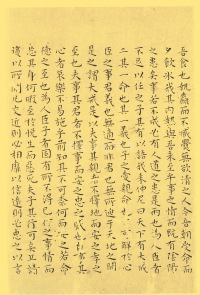 吾食也執粗而不臧爨無欲清之人今吾朝受命而
夕飲冰我其內熱與吾未至乎事之情而既有陰陽
之患矣事若不成必有人道之患是兩也為人臣者
不足以任之子其有以語我來仲尼曰天下有大戒
二其一命也其一義也子之愛親命也不可解於心
臣之事君義也無適而非君也無所逃於天地之間
是之謂大戒是以夫事其親者不擇地而安之孝之
至也夫事其君者不擇事而安之忠之盛也自事其
心者哀樂不易施乎前知其不可奈何而安之若命
德之至也為人臣子者固有所不得已行事之情而
忘其身何暇至於悅生而惡死夫子其行可矣丘請
復以所聞凡交近則必相靡以信遠則必忠之以言